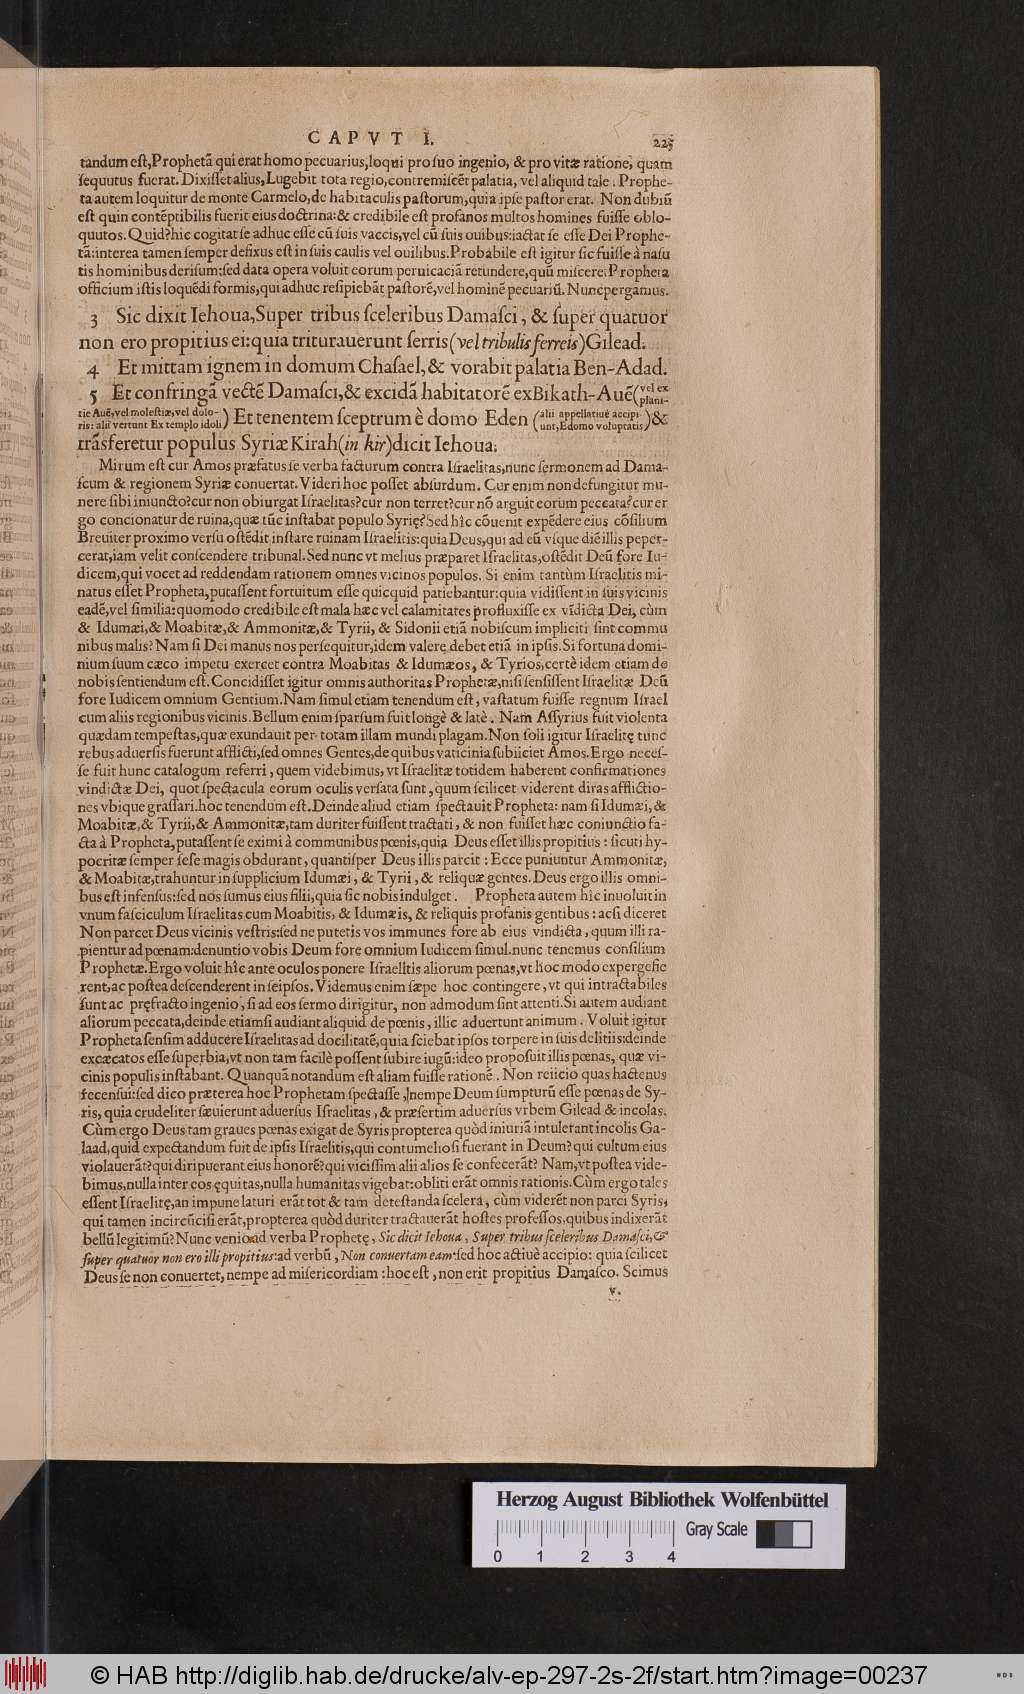 CAPVT I. 225
tandum eſt,Prophetã qui erat homo pecuarius,loqui pro ſuo ingenio, & pro vitæ ratione, quam
ſequutus fuerat. Dixiſſet alius, Lugebit tota regio,contremiſcẽt palatia, vel aliquid tale . Prophe-
ta autem loquitur de monte Carmelo,de habitaculis paſtorum,quia ipſe paſtor erat. Non dubiũ
eſt quin contẽptibilis fuerit eius doctrina:& credibile eſt profanos multos homines fuiſſe oblo-
quutos. Quid?hic cogitat ſe adhuc eſſe cũ ſuis vaccis,vel cũ ſuis ouibus:iactat ſe eſſe Dei Prophe-
tã:interea tamen ſemper defixus eſt in ſuis caulis vel ouilibus. Probabile eſt igitur ſic fuiſſe à naſu
tis hominibus deriſum:ſed data opera voluit eorum peruicaciã retundere,quũ miſceret Propheta
officium iſtis loquẽdi formis,qui adhuc reſipiebãt paſtorẽ,vel hominẽ pecuariũ. Nunc pergamus.
3 Sic dixit Iehoua,Super tribus ſceleribus Damaſci, & ſuper quatuor
non ero propitius ei:quia triturauerunt ferris(vel tribulis ferreis)Gilead.
4 Et mittam ignem in domum Chaſael,& vorabit palatia Ben-Adad.
5 Et confringã vectẽ Damaſci,& excidã habitatorẽ exBikath-Auẽ(vel ex plani-
tie Auẽ,vel moleſtiæ,vel dolo-
ris: alii vertunt Ex templo idoli) Et tenentem ſceptrum è domo Eden (alii appellatiuè accipi-
unt,Edomo voluptatis)&
trãsferetur populus Syriæ Kirah(in kir)dicit Iehoua.
Mirum eſt cur Amos præfatus ſe verba facturum contra Iſraelitas,nunc ſermonem ad Dama-
ſcum & regionem Syriæ conuertat. Videri hoc poſſet abſurdum. Cur enim non defungitur mu-
nere ſibi iniuncto?cur non obiurgat Iſraelitas?cur non terret?cur nõ arguit eorum peccata?cur er
go concionatur de ruina,quæ tũc inſtabat populo Syrię? Sed hîc cõuenit expẽdere eius cõſilium
Breuiter proximo verſu oſtẽdit inſtare ruinam Iſraelitis:quia Deus,qui ad eũ vſque diẽ illis peper-
cerat,iam velit conſcendere tribunal. Sed nunc vt melius præparet Iſraelitas,oſtẽdit Deũ fore Iu-
dicem,qui vocet ad reddendam rationem omnes vicinos populos. Si enim tantùm Iſraelitis mi-
natus eſſet Propheta,putaſſent fortuitum eſſe quicquid patiebantur:quia vidiſſent in ſuis vicinis
eadẽ,vel ſimilia:quomodo credibile eſt mala hæc vel calamitates profluxiſſe ex vĩdicta Dei, cùm
& Idumæi,& Moabitæ,& Ammonitæ,& Tyrii, & Sidonii etiã nobiſcum impliciti ſint commu
nibus malis? Nam ſi Dei manus nos perſequitur,idem valere debet etiã in ipſis. Si fortuna domi-
nium ſuum cæco impetu exercet contra Moabitas & Idumæos, & Tyrios,certè idem etiam de
nobis ſentiendum eſt. Concidiſſet igitur omnis authoritas Prophetæ,niſi ſenſiſſent Iſraelitæ Deũ
fore Iudicem omnium Gentium. Nam ſimul etiam tenendum eſt, vaſtatum fuiſſe regnum Iſrael
cum aliis regionibus vicinis. Bellum enim ſparſum fuit longè & latè. Nam Aſſyrius fuit violenta
quædam tempeſtas,quæ exundauit per totam illam mundi plagam. Non ſoli igitur Iſraelitę tunc
rebus aduerſis fuerunt afflicti,ſed omnes Gentes,de quibus vaticinia ſubiiciet Amos. Ergo neceſ-
ſe fuit hunc catalogum referri, quem videbimus,vt Iſraelitæ totidem haberent confirmationes
vindictæ Dei, quot ſpectacula eorum oculis verſata ſunt, quum ſcilicet viderent diras afflictio-
nes vbique graſſari. hoc tenendum eſt. Deinde aliud etiam ſpectauit Propheta: nam ſi Idumæi,&
Moabitæ,& Tyrii,& Ammonitæ,tam duriter fuiſſent tractati, & non fuiſſet hæc coniunctio fa-
cta à Propheta,putaſſent ſe eximi à communibus pœnis,quia Deus eſſet illis propitius: ſicuti hy-
pocritæ ſemper ſeſe magis obdurant, quantiſper Deus illis parcit : Ecce puniuntur Ammonitæ,
& Moabitæ,trahuntur in ſupplicium Idumæi, & Tyrii, & reliquæ gentes. Deus ergo illis omni-
bus eſt infenſus:ſed nos ſumus eius filii,quia ſic nobis indulget. Propheta autem hîc inuoluit in
vnum faſciculum Iſraelitas cum Moabitis, & Idumæis, & reliquis profanis gentibus : acſi diceret
Non parcet Deus vicinis veſtris:ſed ne putetis vos immunes fore ab eius vindicta, quum illi ra-
pientur ad pœnam:denuntio vobis Deum fore omnium Iudicem ſimul. nunc tenemus conſilium
Prophetæ. Ergo voluit hîc ante oculos ponere Iſraelitis aliorum pœnas,vt hoc modo expergefie
rent,ac poſtea deſcenderent in ſeipſos. Videmus enim ſæpe hoc contingere, vt qui intractabiles
ſunt ac pręfracto ingenio, ſi ad eos ſermo dirigitur, non admodum ſint attenti. Si autem audiant
aliorum peccata,deinde etiamſi audiant aliquid de pœnis, illic aduertunt animum. Voluit igitur
Propheta ſenſim adducere Iſraelitas ad docilitatẽ,quia ſciebat ipſos torpere in ſuis delitiis:deinde
excæcatos eſſe ſuperbia,vt non tam facilè poſſent ſubire iugũ:ideo propoſuit illis pœnas, quæ vi-
cinis populis inſtabant. Quanquã notandum eſt aliam fuiſſe rationẽ. Non reiicio quas hactenus
recenſui:ſed dico præterea hoc Prophetam ſpectaſſe, nempe Deum ſumpturũ eſſe pœnas de Sy-
ris, quia crudeliter ſæuierunt aduerſus Iſraelitas, & præſertim aduerſus vrbem Gilead & incolas.
Cùm ergo Deus tam graues pœnas exigat de Syris propterea quòd iniuriã intulerant incolis Ga-
laad,quid expectandum fuit de ipſis Iſraelitis,qui contumelioſi fuerant in Deum?qui cultum eius
violauerãt?qui diripuerant eius honorẽ?qui viciſſim alii alios ſe confecerãt? Nam,vt poſtea vide-
bimus,nulla inter cos ęquitas,nulla humanitas vigebat:obliti erãt omnis rationis. Cùm ergo tales
eſſent Iſraelitę,an impune laturi erãt tot & tam deteſtanda ſcelera, cùm viderẽt non parci Syris,
qui tamen incircũciſi erãt,propterea quòd duriter tractauerãt hoſtes profeſſos,quibus indixerãt
bellũ legitimũ? Nunc venio ad verba Prophetę, Sic dicit Iehoua, Super tribus ſceleribus Damaſci,&
ſuper quatuor non ero illi propitius:ad verbũ, Non conuertam eam:ſed hoc actiuè accipio: quia ſcilicet
Deus ſe non conuertet, nempe ad miſericordiam : hoc eſt, non erit propitius Damaſco. Scimus
v.
Herzog August Bibliothek Wolfenbüttel
0 1 2 3 4
Gray Scale
© HAB http://diglib.hab.de/drucke/alv-ep-297-2s-2f/start.htm?image=00237
WDB